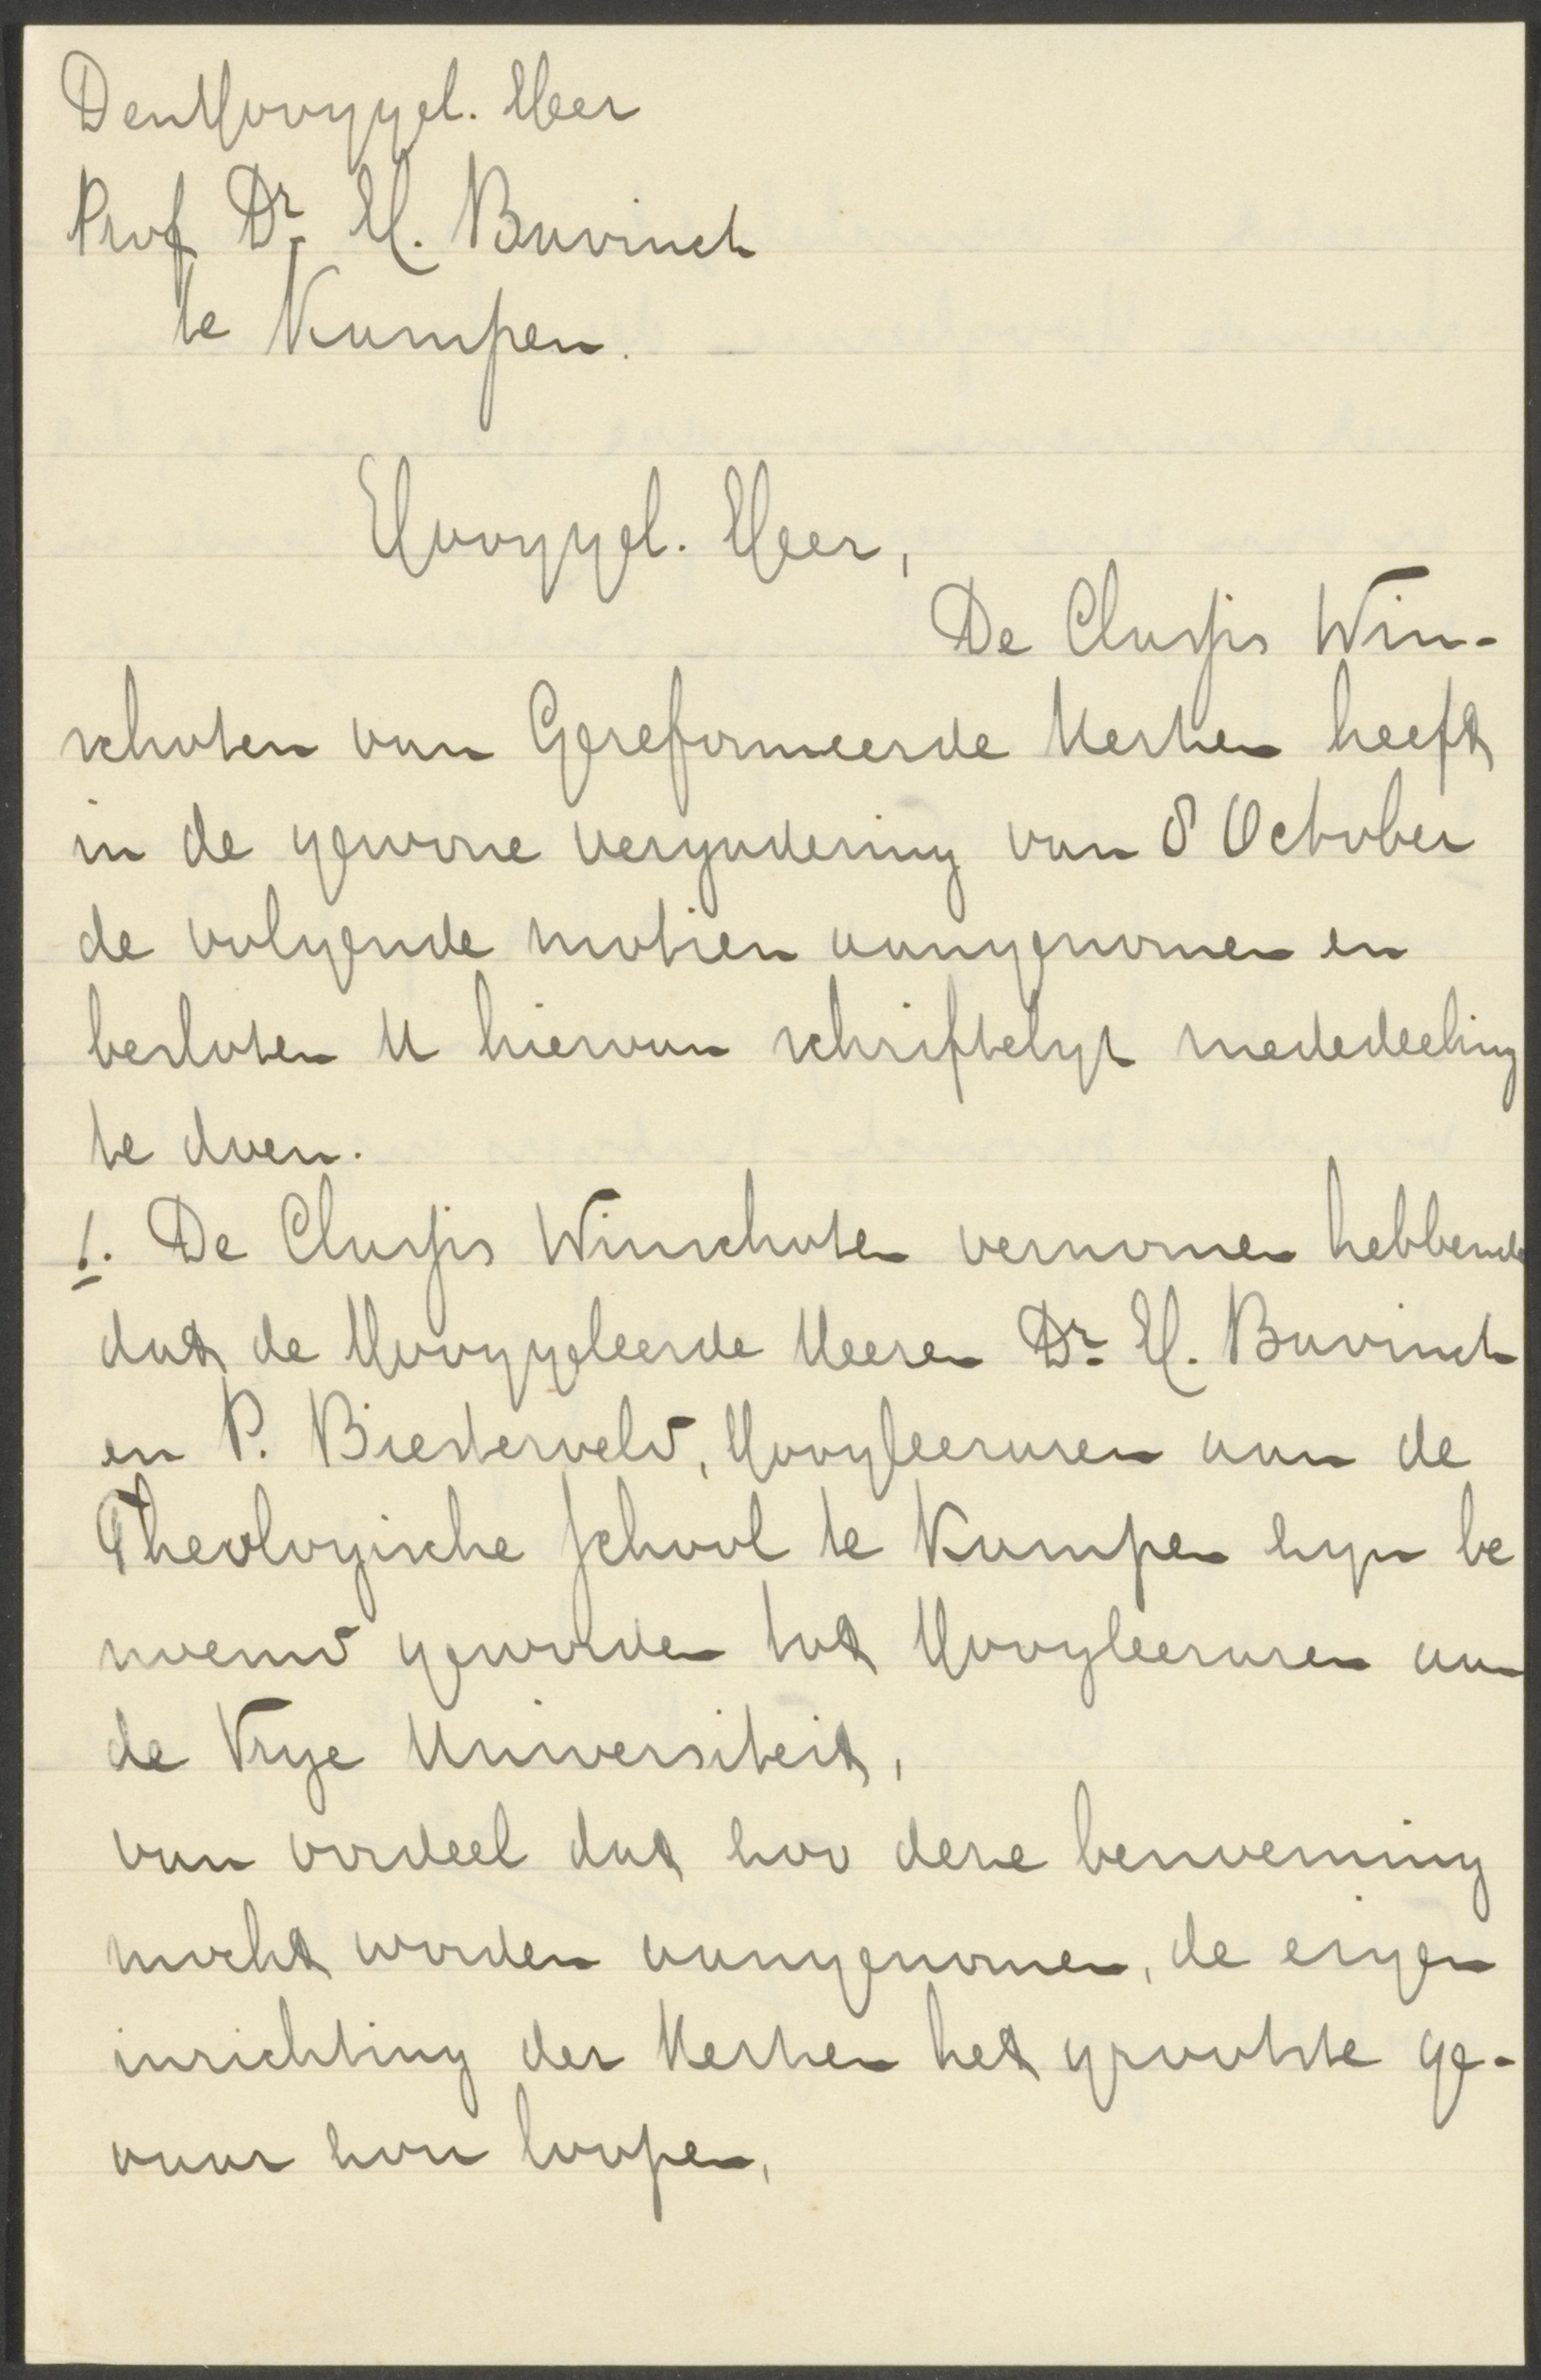 Den Hooggel. Heer
Prof Dr. H. Bavinck
te Kampen.
Hooggel. Heer,
De Classis Win-
schoten van Gereformeerde Kerken heeft
in de gewone vergadering van 8 October
de volgende motien aangenomen en
besloten U hiervan schriftelijk mededeeling
te doen.
1. De Classis Winschoten vernomen hebbende
dat de Hooggeleerde Heeren Dr. H. Bavinck
en P. Biesterveld, Hoogleeraren aan de
Theologische School te Kampen zijn be
noemd geworden tot Hoogleeraren aan
de Vrije Universiteit,
van oordeel dat zoo deze benoeming
mocht worden aangenomen, de eigen
inrichting der Kerken het grootste ge-
vaar zou loopen,